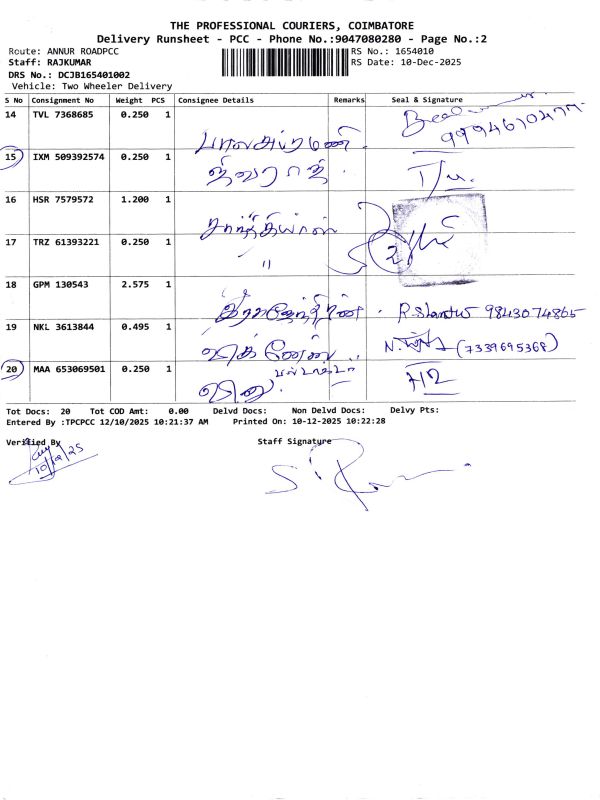 THE PROFESSIONAL COURIERS, COIMBATORE
Delivery Runsheet - PCC - Phone No.:9047080280 - Page No.:2
Route: ANNUR ROADPCC RS No.: 1654010
Staff: RAJKUMAR RS Date: 10-Dec-2025
DRS No.: DCJB165401002
Vehicle: Two Wheeler Delivery
S No Consignment No Weight PCS Consignee Details Remarks Seal & Signature
14 TVL 7368685 0.250 1 பாலசுப்ரமணி 9994610477
15 IXM 509392574 0.250 1
16 HSR 7579572 1.200 1
17 TRZ 61393221 0.250 1 "
18 GPM 130543 2.575 1 9843074865
19 NKL 3613844 0.495 1 (7339695368)
20 MAA 653069501 0.250 1
Tot Docs: 20 Tot COD Amt: 0.00 Delvd Docs: Non Delvd Docs: Delvy Pts:
Entered By :TPCPCC 12/10/2025 10:21:37 AM Printed On: 10-12-2025 10:22:28
Verified By Staff Signature
10/12/25